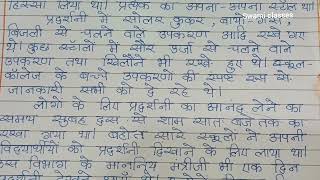 Swami classes
हिस्सा लिया था। प्रत्येक का अपना-अपना स्टाल था।
प्रदर्शनी में सोलर कुकर,
बिजली से चलने वाले उपकरण आदि रखे गए
थे। कुछ स्टालों में सौर ऊर्जा से चलने वाले
उपकरण तथा खिलौने भी रखे हुए थे। स्कूल-
कॉलेज के बच्चे उपकरणों की स्पष्ट रूप से
जानकारी सभी को दे रहे थे।
लोगों के लिए प्रदर्शनी का आनंद लेने का
समय सुबह दस से शाम सात बजे तक का
रखा गया था। बहुत सारे स्कूलों ने अपनी
विद्यार्थीयों को प्रदर्शनी दिखाने के लिए लाया था।
इस विभाग के माननिय मंत्रीजी भी एक दिन